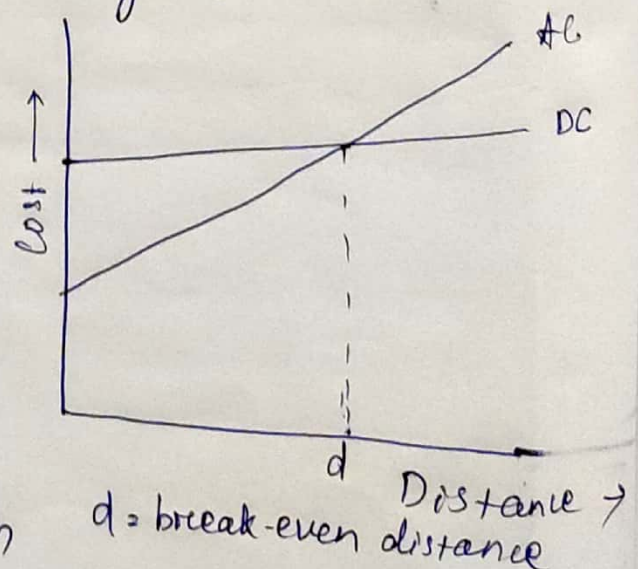 AC
DC
Cost →
d
Distance →
d = break-even distance